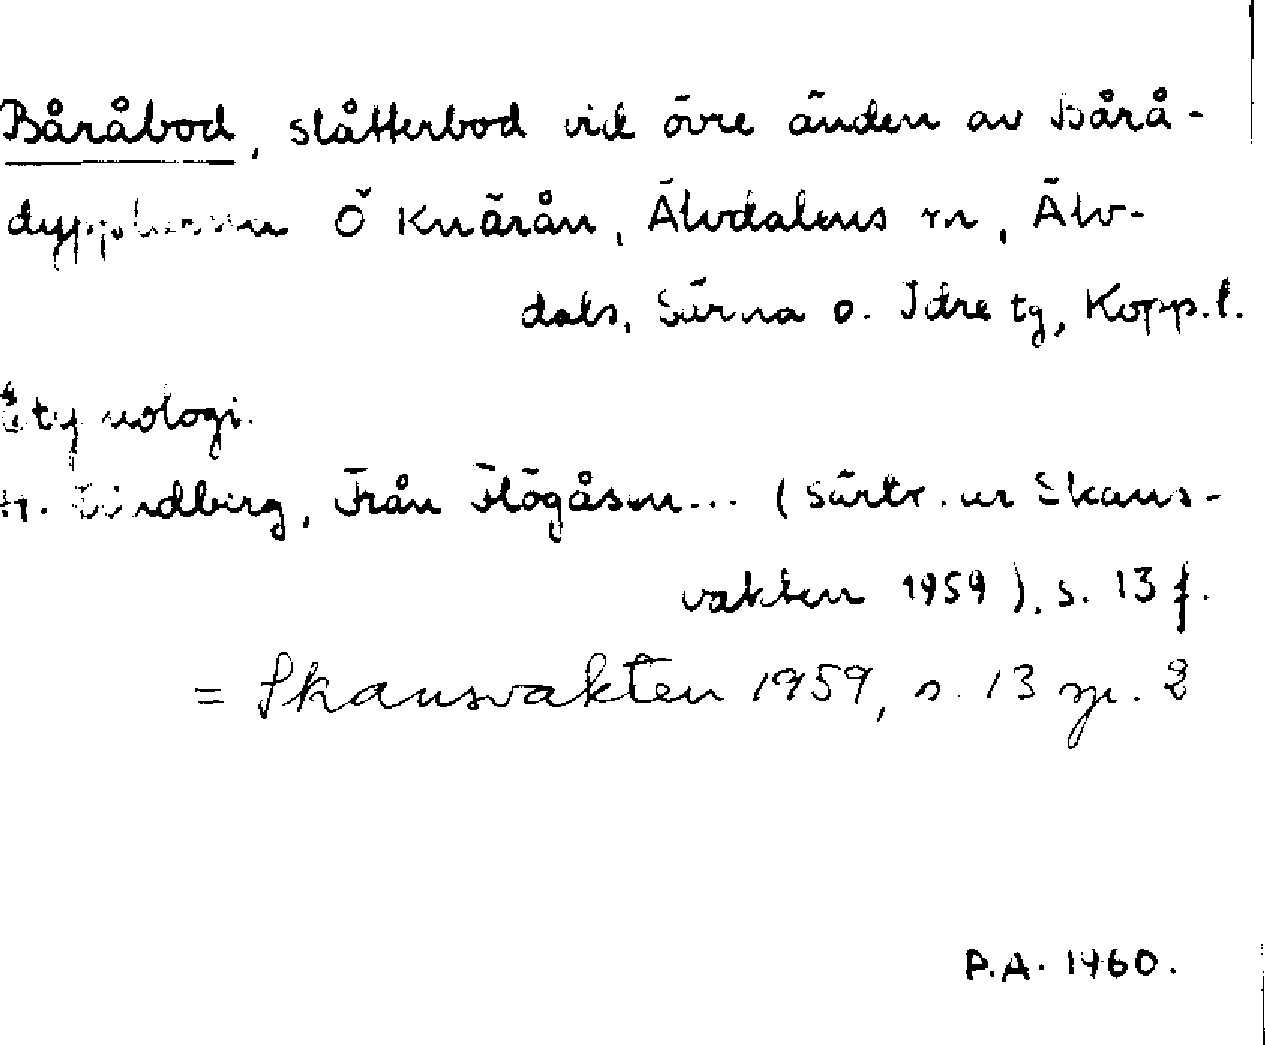 Båråbod, slåtterbod vid övre änden av Bårå-
Ö Knärån, Älvdalens sn, Älv-
dals, Särna o. Idre tg, Kopp.l.
Etymologi.
H. Lindberg, Från Flögåsen... (särtr. ur Skans-
vakten 1959), s. 13 f.
= Skansvakten 1959, s. 13 sp. 2
P.A. 1960.